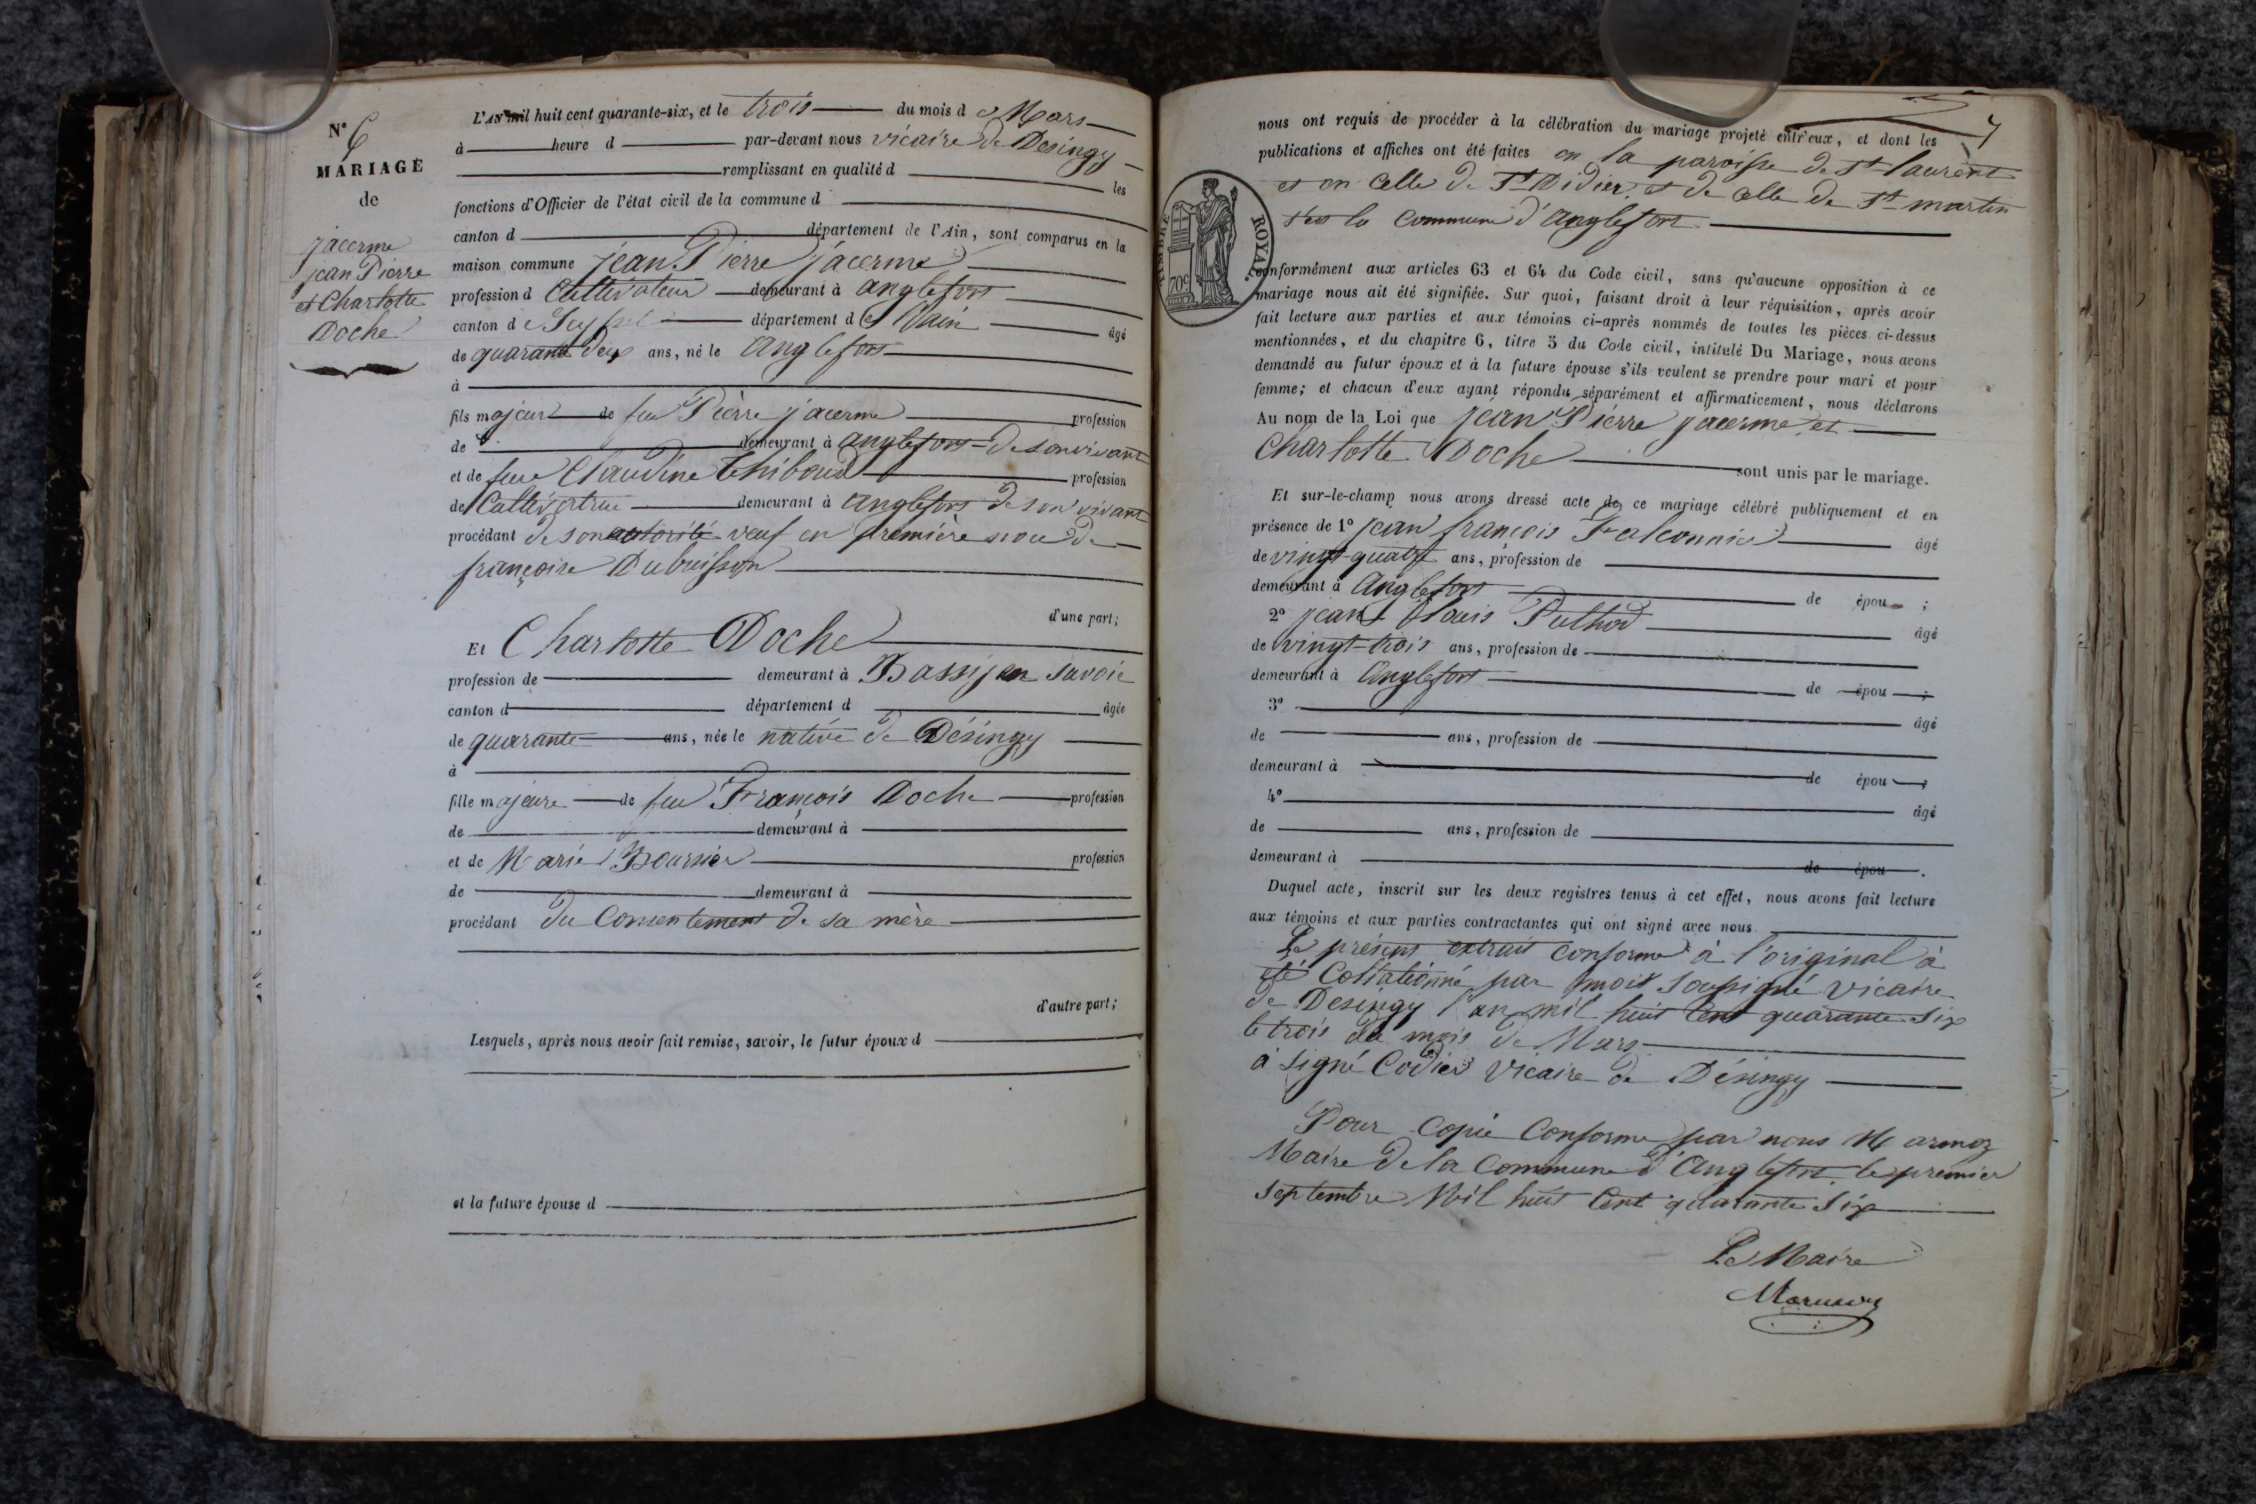 N° 6
MARIAGE
de
jacerme
jean Pierre
et Charlotte
Doche
L'AN mil huit cent quarante-six, et le trois du mois d e Mars
à heure d par-devant nous vicaire de Desingy
remplissant en qualité d les
fonctions d'Officier de l'état civil de la commune d
canton d département de l'Ain, sont comparus en la
maison commune jean Pierre jacerme
profession d Cultivateur demeurant à anglefort
canton d e Seyssel département d e l'ain âgé
de quarante deux ans, né le anglefort
à
fils majeur de feu Pierre jacerme profession
de demeurant à anglefort de son vivant
et de feue Claudine Thiboud profession
de Cultivatrice demeurant à anglefort de son vivant
procédant de son autorité veuf en première noce de
françoise Dubuisson
d'une part;
Et Charlotte Doche
profession de demeurant à Bassy en savoie
canton d département d âgée
de quarante ans, née le native de Désingy
à
fille majeure de feu François Doche profession
de demeurant à
et de Marie Boursier profession
de demeurant à
procédant du Consentement de sa mère
d'autre part;
Lesquels, après nous avoir fait remise, savoir, le futur époux d
et la future épouse d
7
nous ont requis de procéder à la célébration du mariage projeté entr'eux, et dont les
publications et affiches ont été faites en la paroisse de St laurent
et en celle de St Didier, et de celle de St martin
la commune d'anglefort
TIMBRE ROYAL
conformément aux articles 63 et 64 du Code civil, sans qu'aucune opposition à ce
mariage nous ait été signifiée. Sur quoi, faisant droit à leur réquisition, après avoir
fait lecture aux parties et aux témoins ci-après nommés de toutes les pièces ci-dessus
mentionnées, et du chapitre 6, titre 5 du Code civil, intitulé Du Mariage, nous avons
demandé au futur époux et à la future épouse s'ils veulent se prendre pour mari et pour
femme; et chacun d'eux ayant répondu séparément et affirmativement, nous déclarons
Au nom de la Loi que jean Pierre jacerme et
Charlotte Doche
sont unis par le mariage.
Et sur-le-champ nous avons dressé acte de ce mariage célébré publiquement et en
présence de 1° jean françois Falconnier âgé
de vingt-quatre ans, profession de
demeurant à anglefort de épou ;
2° jean Louis Puthod âgé
de vingt-trois ans, profession de
demeurant à anglefort de épou ;
3° âgé
de ans, profession de
demeurant à de épou ;
4° âgé
de ans, profession de
demeurant à de épou .
Duquel acte, inscrit sur les deux registres tenus à cet effet, nous avons fait lecture
aux témoins et aux parties contractantes qui ont signé avec nous
Le présent extrait conforme à l'original à
été Collationné par moi soussigné vicaire
de Desingy l'an mil huit cent quarante six
le trois du mois de Mars
à signé Codier vicaire de Désingy
Pour Copie Conforme par nous Marmoz
Maire de la Commune d'Anglefort le premier
septembre Mil huit Cent quarante six
Le Maire
Marmoz